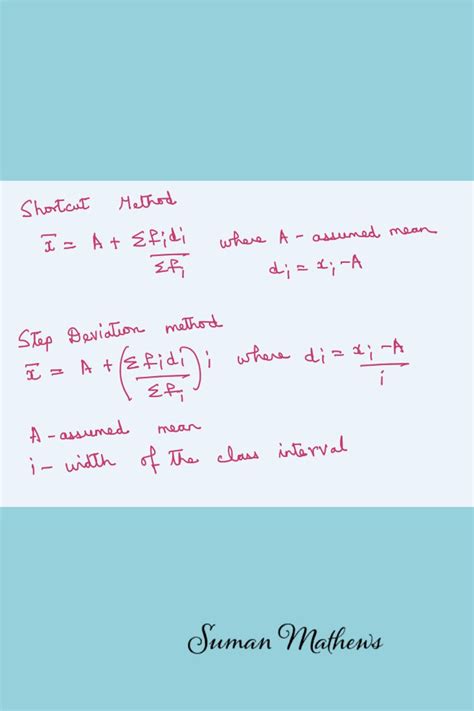 Shortcut Method
x̄ = A + Σfidi/Σfi where A - assumed mean
di = xi - A
Step Deviation method
x̄ = A + (Σfidi/Σfi) i where di = xi - A/i
A - assumed mean
i - width of the class interval
Suman Mathews